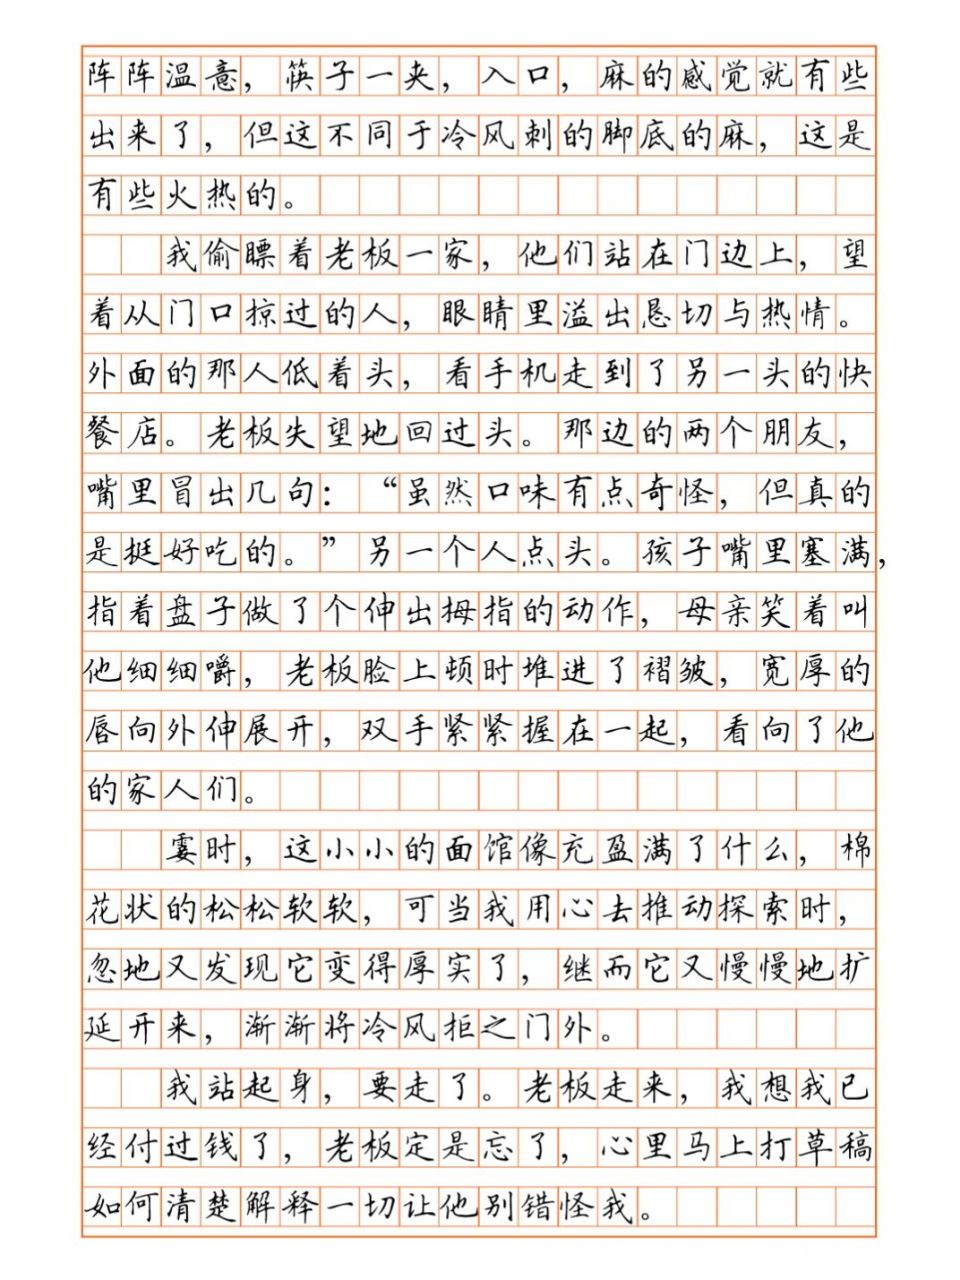 阵阵温意，筷子一夹，入口，麻的感觉就有些
出来了，但这不同于冷风刺的脚底的麻，这是
有些火热的。
我偷瞟着老板一家，他们站在门边上，望
着从门口掠过的人，眼睛里溢出恳切与热情。
外面的那人低着头，看手机走到了另一头的快
餐店。老板失望地回过头。那边的两个朋友，
嘴里冒出几句：“虽然口味有点奇怪，但真的
是挺好吃的。”另一个人点头。孩子嘴里塞满，
指着盘子做了个伸出拇指的动作，母亲笑着叫
他细细嚼，老板脸上顿时堆进了褶皱，宽厚的
唇向外伸展开，双手紧紧握在一起，看向了他
的家人们。
霎时，这小小的面馆像充盈满了什么，棉
花状的松松软软，可当我用心去推动探索时，
忽地又发现它变得厚实了，继而它又慢慢地扩
延开来，渐渐将冷风拒之门外。
我站起身，要走了。老板走来，我想我已
经付过钱了，老板定是忘了，心里马上打草稿
如何清楚解释一切让他别错怪我。